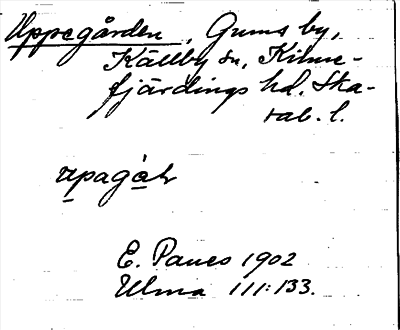 Uppegården, Gums by,
Källby sn, Kinne-
fjärdings hd. Ska-
rab. l.
upagåɫ
E. Paues 1902
Ulma 111:133.